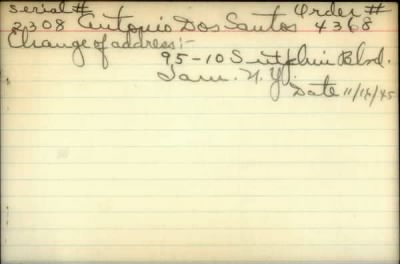 Serial # Order #
2308 Antonio Dos Santos 4368
Change of address:-
95-10 Sutphin Blvd.
Jam. N.Y.
Date 11/16/45